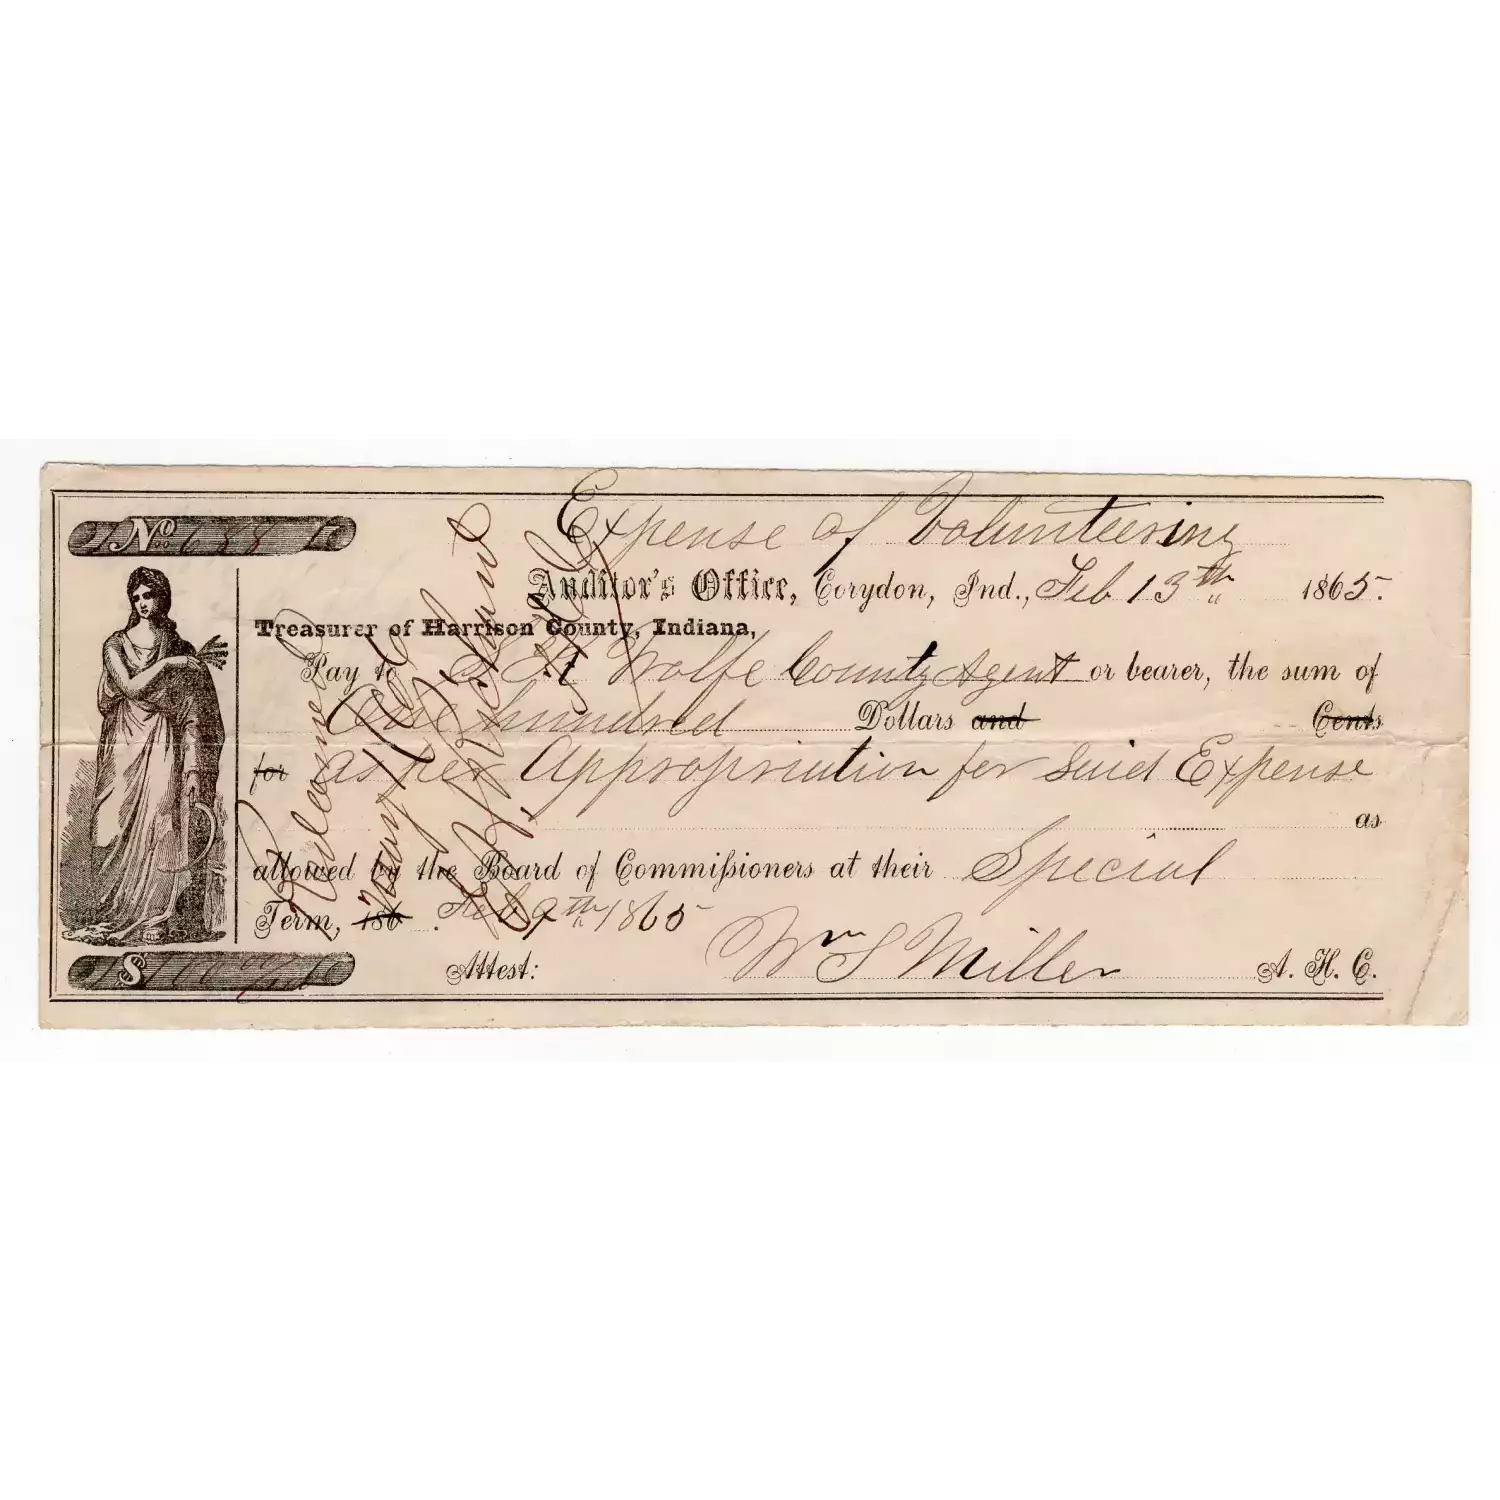 Expense of Volunteering
No. 658
Auditor's Office, Corydon, Ind., Feb 13th 1865.
Treasurer of Harrison County, Indiana,
Pay to S. K. Wolfe County Agent or bearer, the sum of
One hundred Dollars and Cents
for as per Appropriation for Said Expense
as
allowed by the Board of Commissioners at their Special
Term, 186 . Feb 9th 1865
Attest: Wm S Miller A. H. C.
$ 100